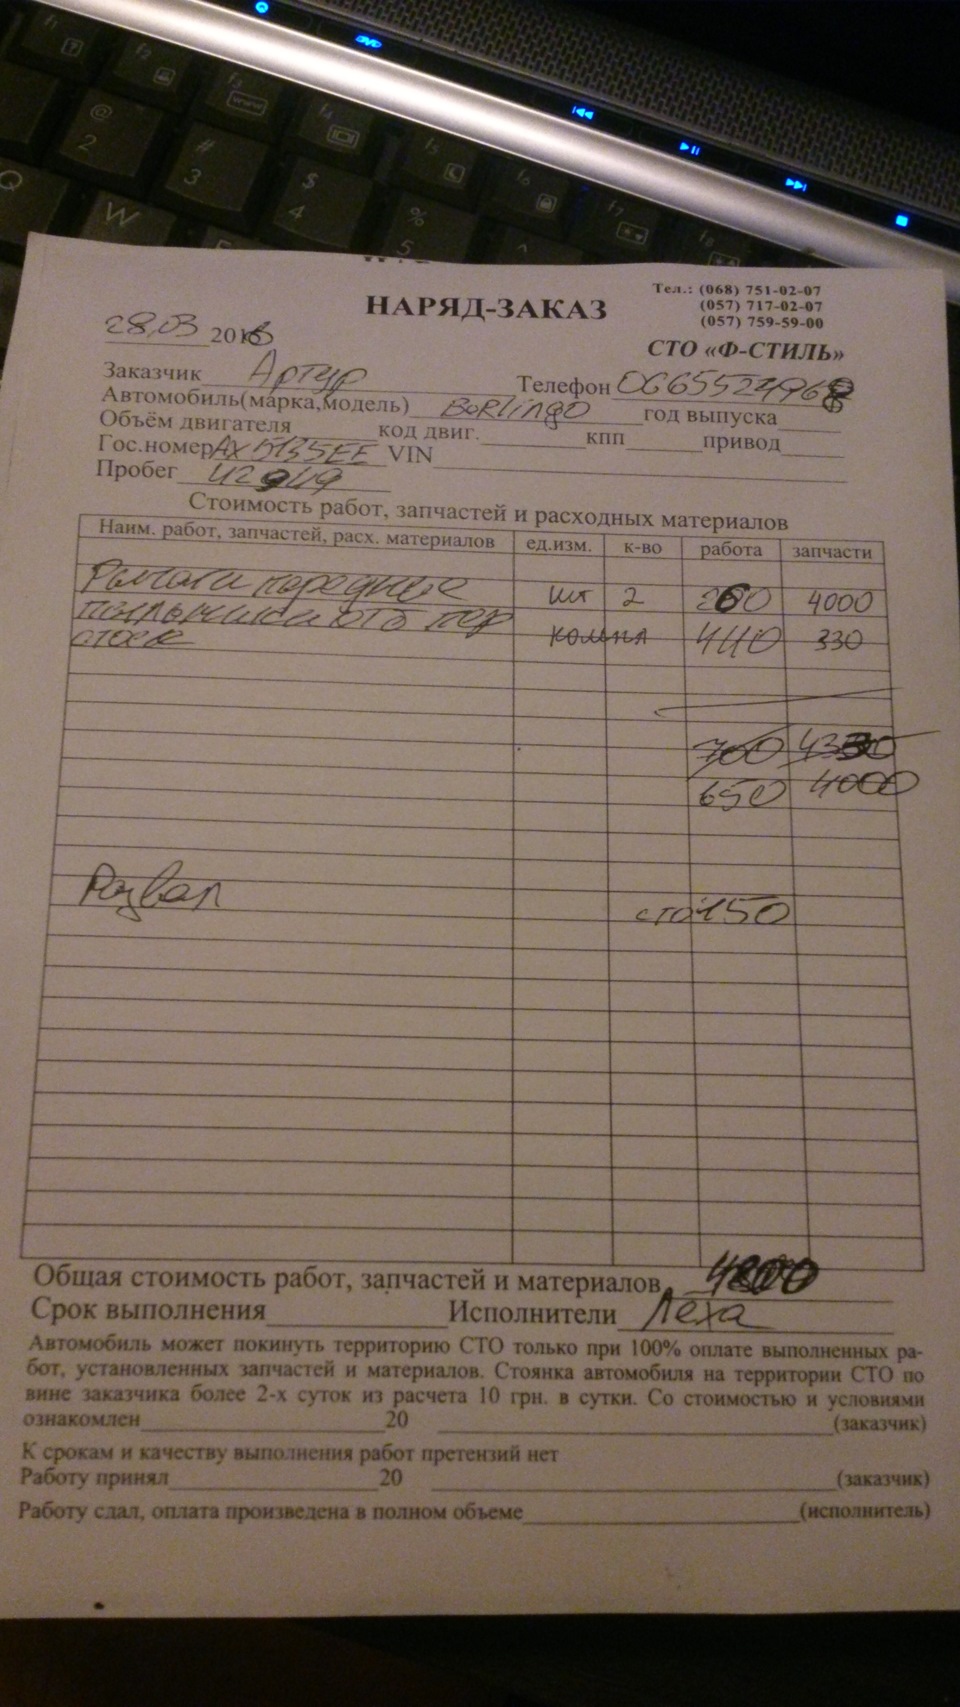 Тел.: (068) 751-02-07
НАРЯД-ЗАКАЗ (057) 717-02-07
(057) 759-59-00
28,03 2016
СТО «Ф-СТИЛЬ»
Заказчик Артур Телефон 066552796
Автомобиль(марка,модель) BORLingo год выпуска
Объём двигателя код двиг. кпп привод
Гос.номер АХ5135ЕЕ VIN
Пробег 42949
Стоимость работ, запчастей и расходных материалов
Наим. работ, запчастей, расх. материалов ед.изм. к-во работа запчасти
Рычаги передние шт 2 260 4000
440 330
стоек
700 4330
650 4000
Развал сто 150
Общая стоимость работ, запчастей и материалов 4800
Срок выполнения Исполнители Лёха
Автомобиль может покинуть территорию СТО только при 100% оплате выполненных ра-
бот, установленных запчастей и материалов. Стоянка автомобиля на территории СТО по
вине заказчика более 2-х суток из расчета 10 грн. в сутки. Со стоимостью и условиями
ознакомлен 20 (заказчик)
К срокам и качеству выполнения работ претензий нет
Работу принял 20 (заказчик)
Работу сдал, оплата произведена в полном объеме (исполнитель)